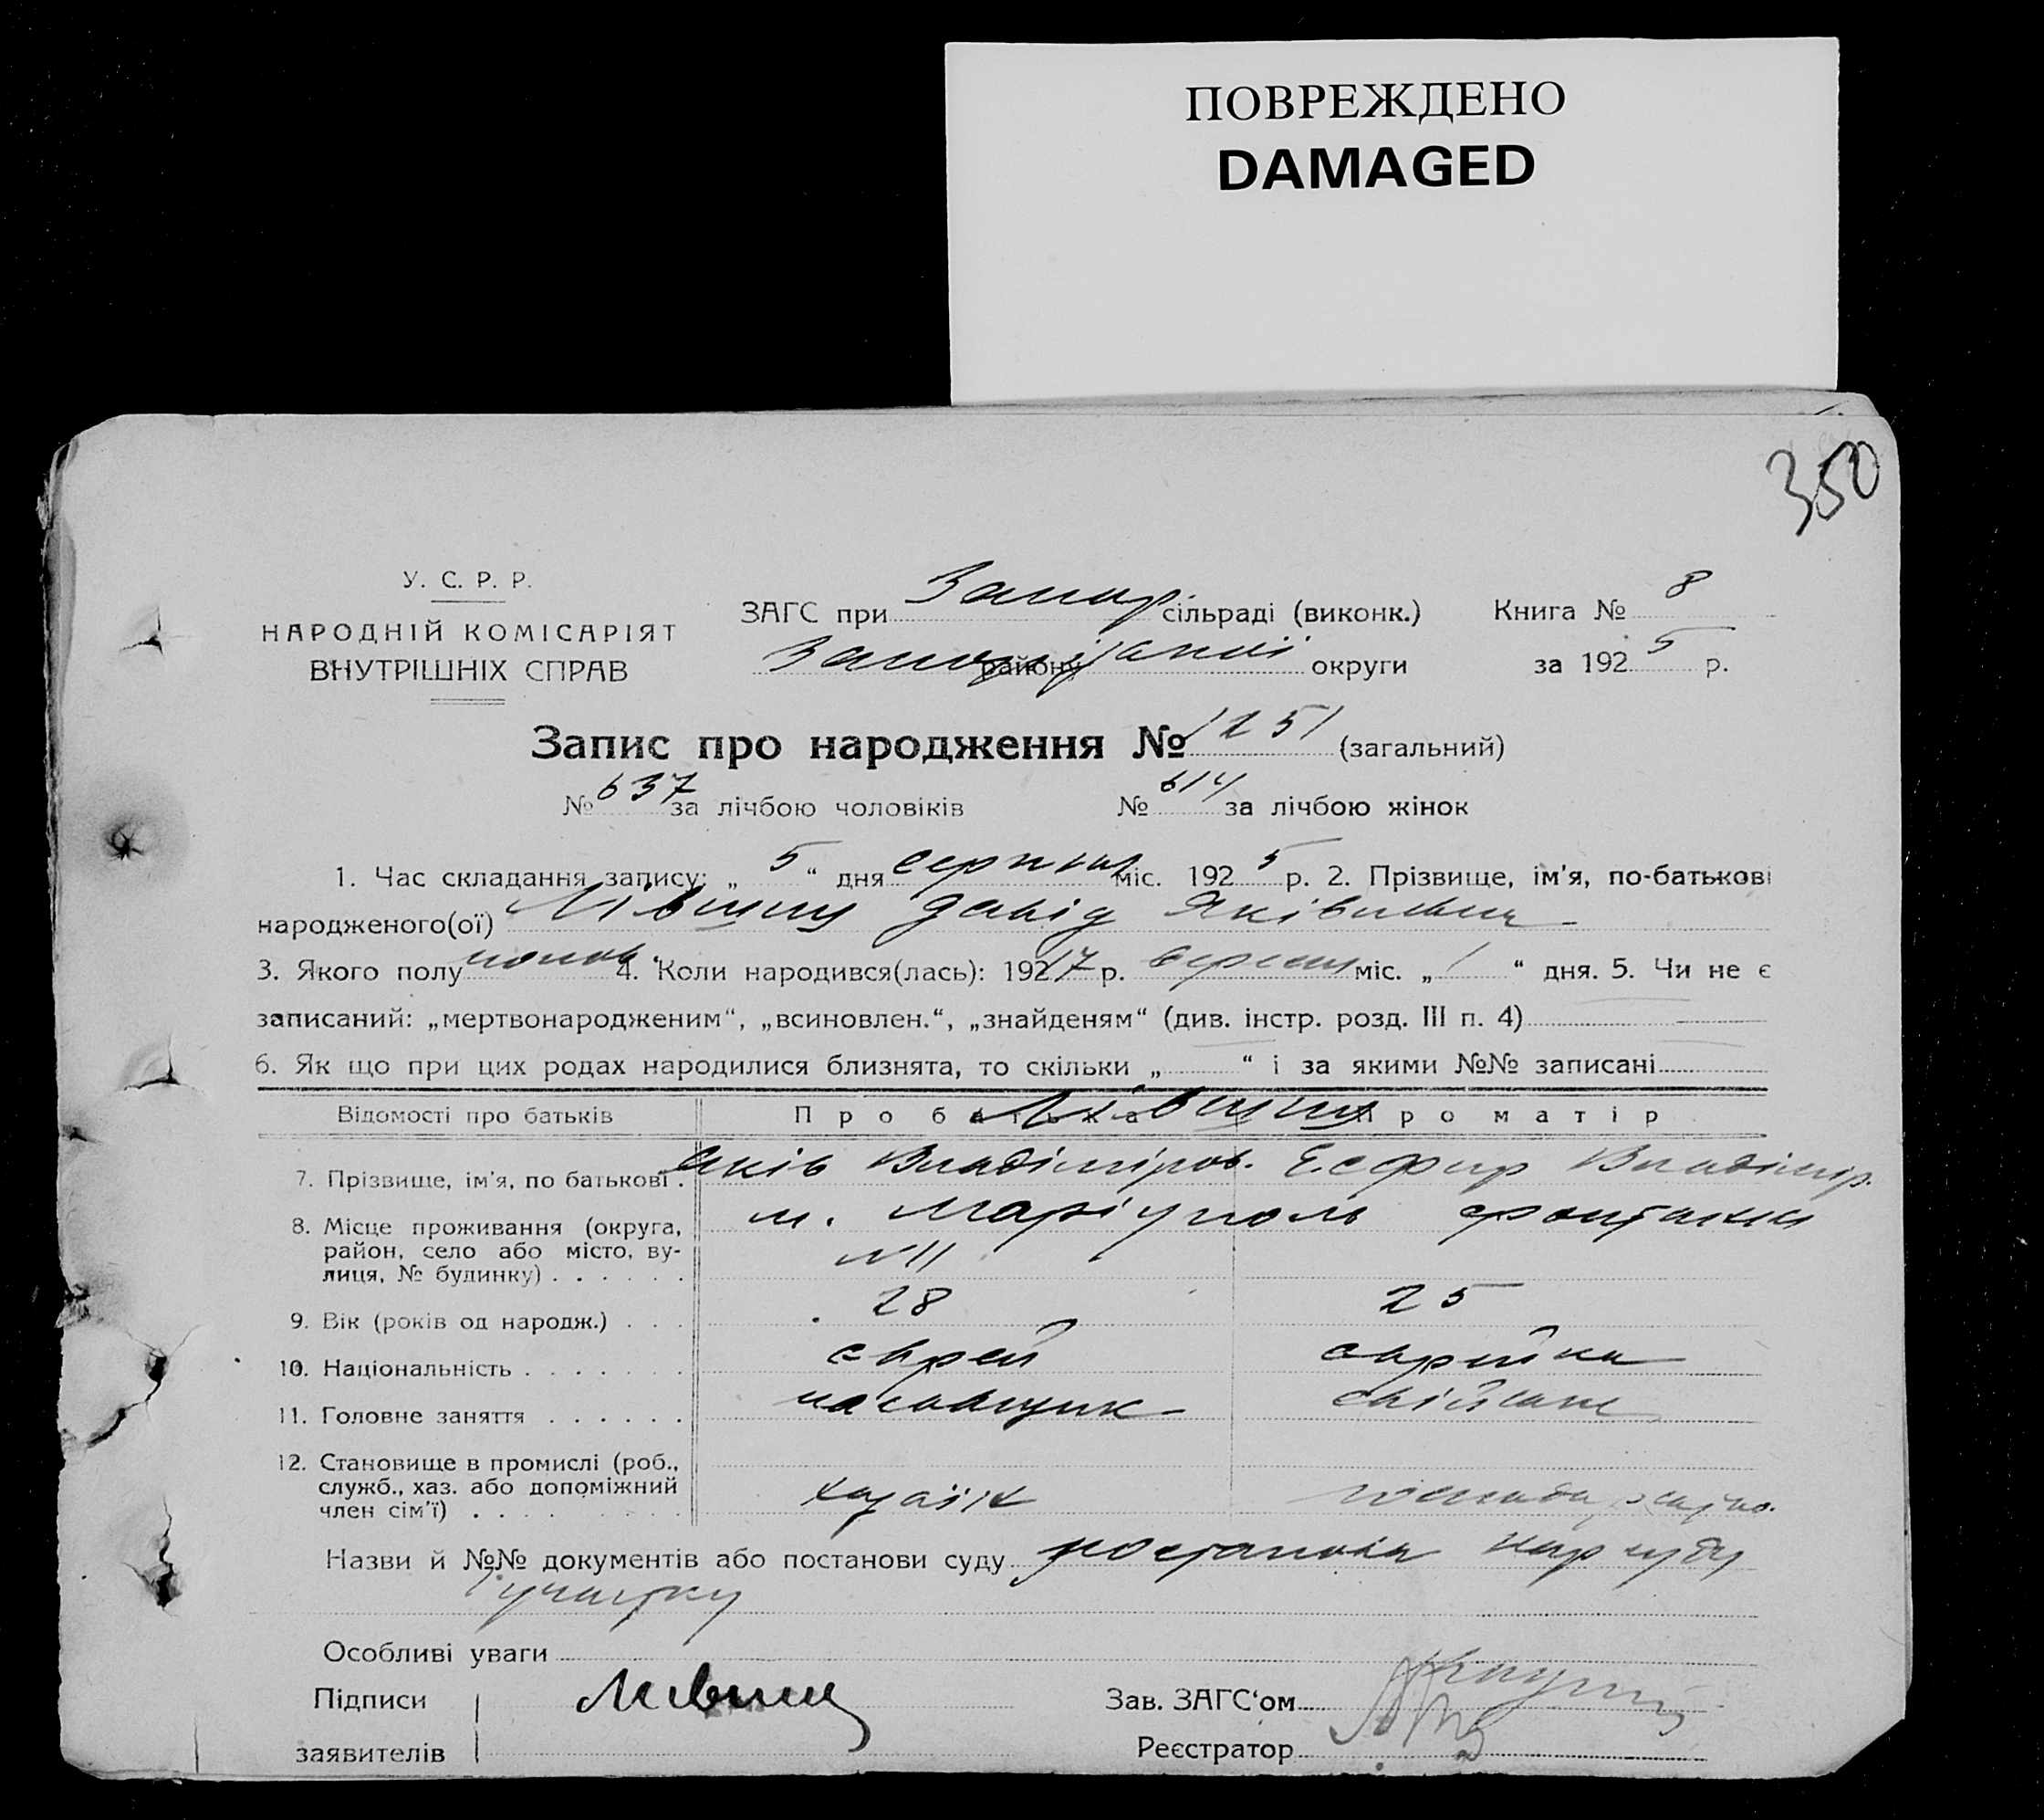 ПОВРЕЖДЕНО
DAMAGED
350
У. С. Р. Р.
НАРОДНІЙ КОМІСАРІЯТ
ВНУТРІШНІХ СПРАВ
ЗАГС при Запор. сільраді (виконк.) Книга № 8
району округи за 1925 р.
Запис про народження № 1251 (загальний)
№ 637 за лічбою чоловіків № 614 за лічбою жінок
1. Час складання запису: „ 5 “ дня серпня міс. 1925 р. 2. Прізвище, ім'я, по-батькові
народженого(ої) Лівшиц Давід Яківлевич
3. Якого полу чолов. 4. Коли народився(лась): 19217 р. вересня міс. „ 1 “ дня. 5. Чи не є
записаний: „мертвонародженим“, „всиновлен.“, „знайденям“ (див. інстр. розд. III п. 4)
6. Як що при цих родах народилися близнята, то скільки „ “ і за якими №№ записані
Відомості про батьків Про батька Лівшиц Про матір
7. Прізвище, ім'я, по батькові . Яків Владіміров. Есфир Владімір.
8. Місце проживання (округа, м. Маріуполь
район, село або місто, ву- N 11
лиця, № будинку) . . . . . .
9. Вік (років од народж.) . . . 28 25
10. Національність . . . . . . . еврей еврейка
11. Головне заняття . . . . . .
12. Становище в промислі (роб.,
служб., хаз. або допоміжний хазаїн
член сім'ї) . . . . . . . . .
Назви й №№ документів або постанови суду постанова нарсуду
участку
Особливі уваги
Підписи Лившиц Зав. ЗАГС‘ом
заявителів Реєстратор